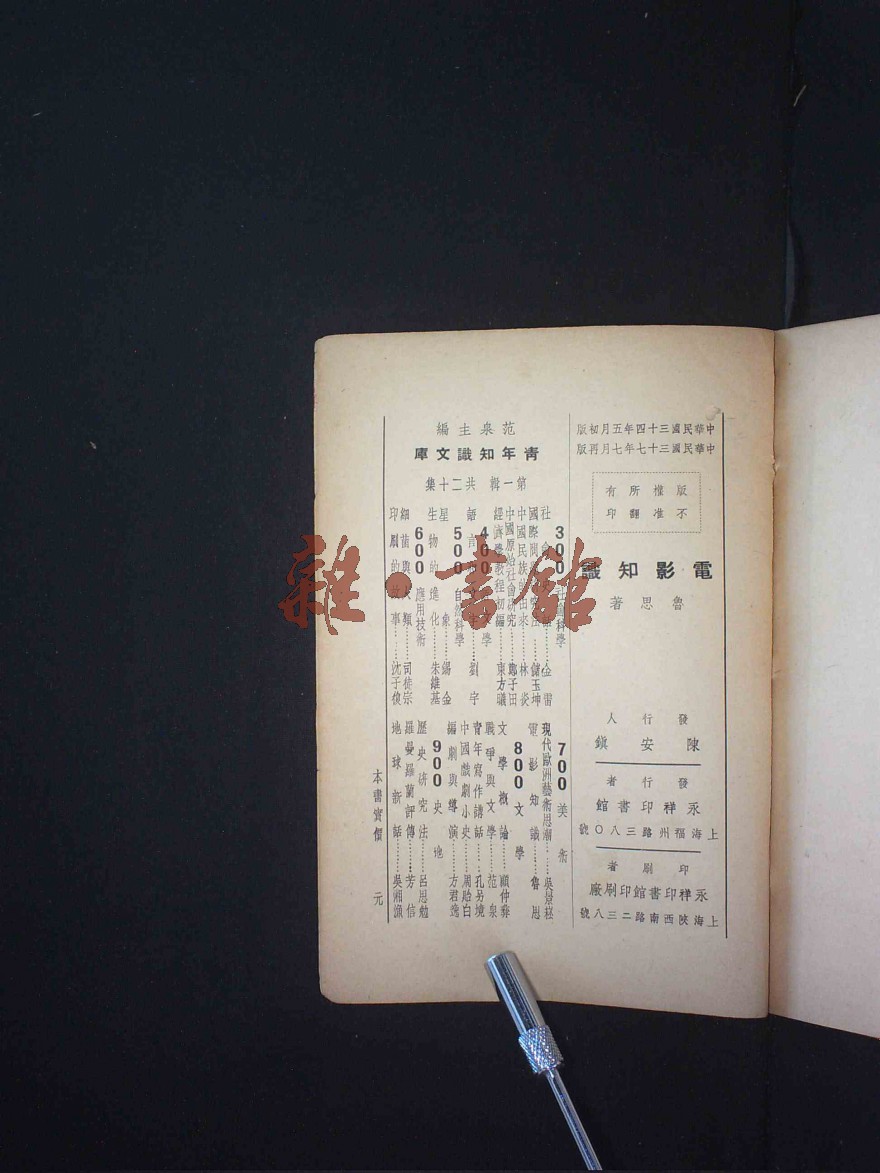 中華民國三十四年五月初版
中華民國三十七年七月再版
版權所有
不准翻印
電影知識
魯思著
發行人
陳安鎮
發行者
永祥印書館
上海福州路三八〇號
印刷者
永祥印書館印刷廠
上海陝西南路二三八號
范泉主編
青年知識文庫
第一輯 共二十集
300 社會科學
金雷
儲玉坤
中國民族的由來……林炎
中國原始社會研究……鄭子田
經濟學教程初編……東方曦
400 學
語言……劉宇
500 自然科學
星象……錫金
生物的進化……朱維基
600 應用技術
細菌與人類……司徒宗
印刷的故事……沈子復
700 美術
現代歐洲藝術思潮……吳景崧
電影知識……魯思
800 文學
文學概論……顧仲彝
戰爭與文學……范泉
青年寫作講話……孔另境
中國戲劇小史……周貽白
編劇與導演……方君逸
900 史地
歷史研究法……呂思勉
羅曼羅蘭評傳……芳信
地球新話……吳湘漁
本書實價 元
雜·書館